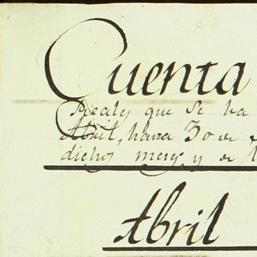 Cuenta
Reales que se ha
Abril, hasta 30 de
dichos meses y de
Abril